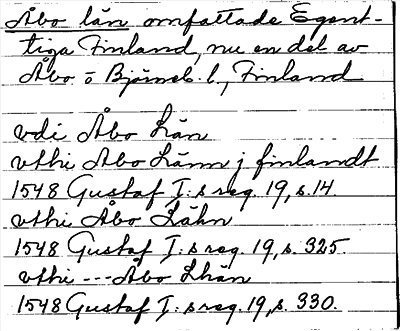 Åbo län omfattade Egent-
liga Finland, nu en del av
Åbo o Björneb. l., Finland
vdi Åbo Län
vthi Åbo Länn j finlandt
1548 Gustaf I:s reg. 19, s. 14.
vthi Åbo Lähn
1548 Gustaf I:s reg. 19, s. 325.
vthi --- Åbo Lhän
1548 Gustaf I:s reg. 19, s. 330.